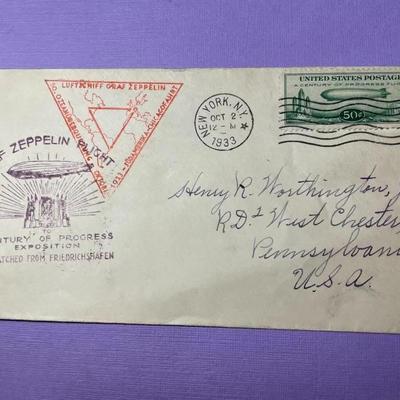 LUFTSCHIFF GRAF ZEPPELIN
1933
NEW YORK, N.Y.
OCT 2
12 - M
1933
UNITED STATES POSTAGE
A CENTURY OF PROGRESS FLIGHT
50¢
ZEPPELIN FLIGHT
TO
CENTURY OF PROGRESS
EXPOSITION
FROM FRIEDRICHSHAFEN
Henry R. Worthington, J
R.D.2 West Chester,
Pennsylvania
U.S.A.